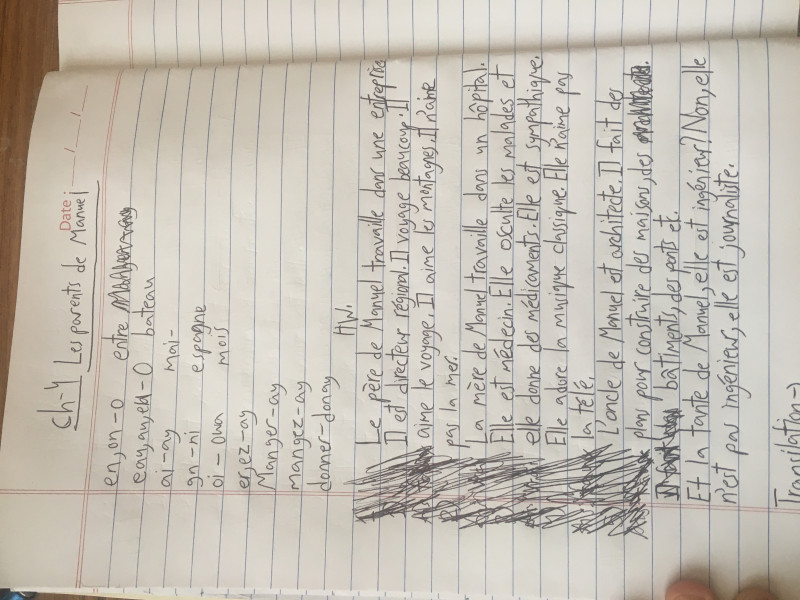 Date: __/__/__
Ch-4 Les parents de Manuel
en, on-o entre
eau, au, eu-O bateau
ai-ay mai-
gn-ni espagne
oi-owa mois
er, ez-ay
Manger-ay
mangez-ay
donner-donay
HW.
Le père de Manuel travaille dans une entreprise
Il est directeur régional. Il voyage beaucoup. Il
aime le voyage. Il aime les montagnes. Il n'aime
pas la mer.
La mère de Manuel travaille dans un hôpital.
Elle est médecin. Elle osculte les malades et
elle donne des médicaments. Elle est sympathique.
Elle adore la musique classique. Elle n'aime pas
la télé.
L'oncle de Manuel est architecte. Il fait des
plans pour construire des maisons, des
bâtiments, des ponts et.
Et la tante de Manuel, elle est ingénieur? Non, elle
n'est pas ingénieur, elle est journaliste.
Transilation→